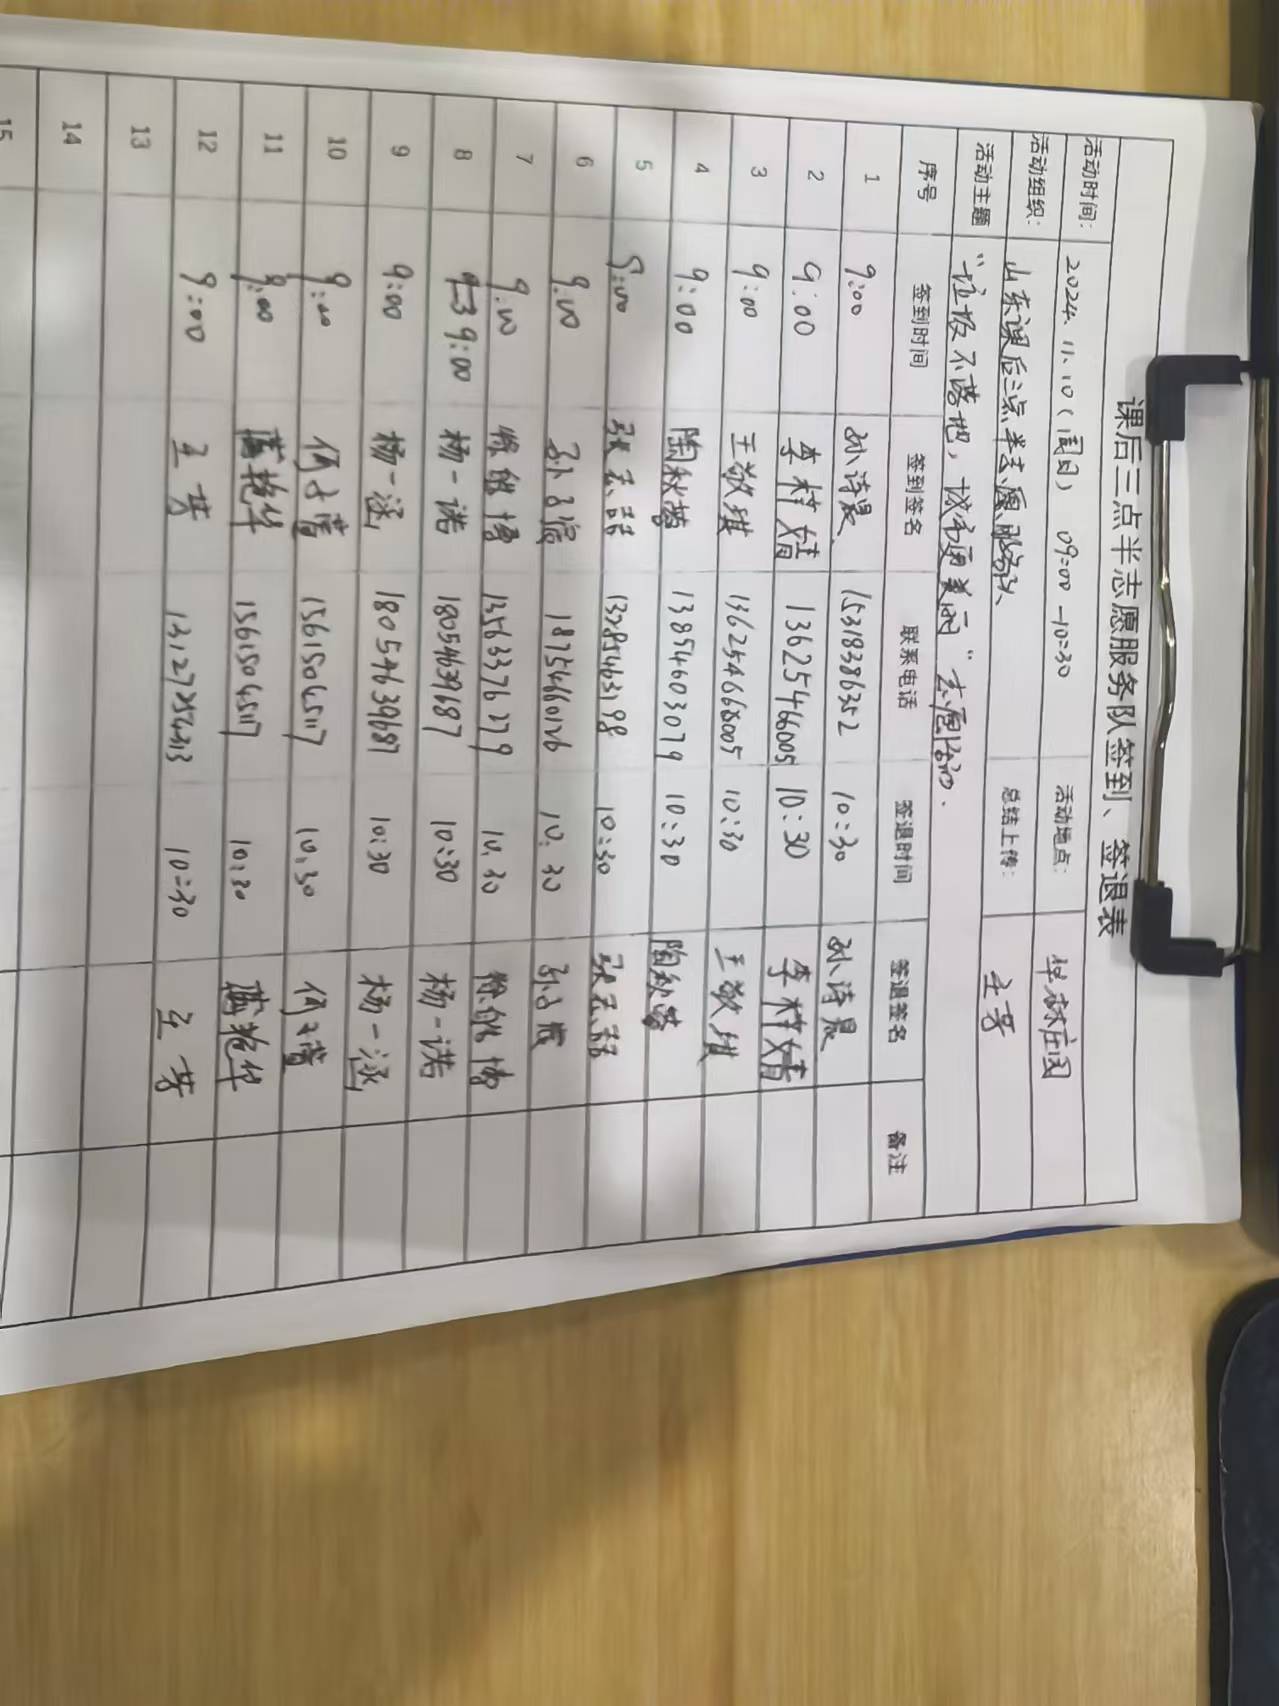 课后三点半志愿服务队签到、签退表
活动时间: 2024.11.10(周日) 09:00-10:30 活动地点:
活动组织: 山东课后三点半志愿服务队 总结上传: 王芳
活动主题 "垃圾不落地,城市更美丽"志愿活动.
序号 签到时间 签到签名 联系电话 签退时间 签退签名 备注
1 9:00 孙诗晨 15318386352 10:30 孙诗晨
2 9:00 李梓婧 13625466005 10:30 李梓婧
3 9:00 王敬琪 13625466005 10:30 王敬琪
4 9:00 陶秋蓓 13854603079 10:30 陶秋蓓
5 9:00 10:30
6 9:00 18754660126 10:30
7 9:00 13563376279 10:30
8 9:00 杨一诺 18054639687 10:30 杨一诺
9 9:00 杨一涵 18054639687 10:30 杨一涵
10 9:00 何子萱 15615045117 10:30 何子萱
11 9:00 15615045117 10:30
12 9:00 王芳 10:30 王芳
13
14
15